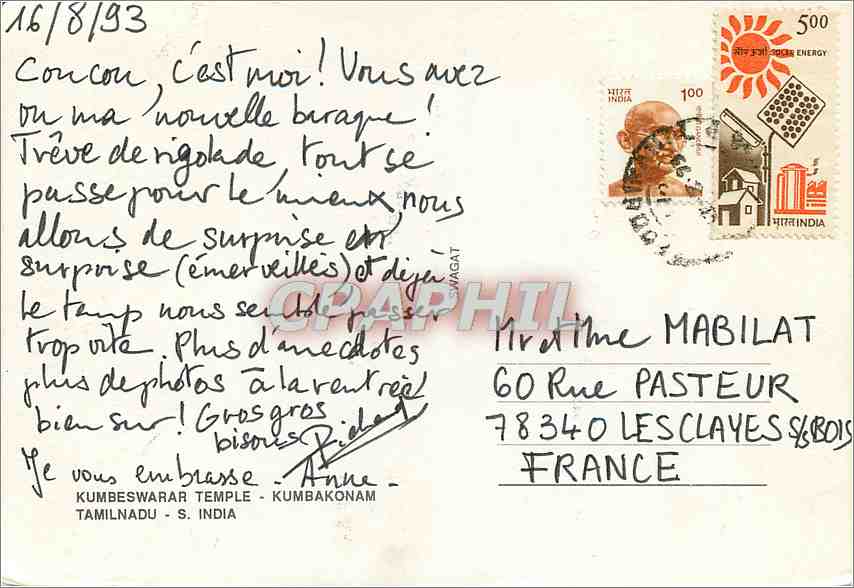 16/8/93
Coucou, c'est moi! Vous avez
vu ma nouvelle baraque!
Trêve de rigolade, tout se
passe pour le mieux, nous
allons de surprise en
surprise (émerveillés) et déjà
le temps nous semble passer
trop vite. Plus d'anecdotes
plus de photos à la rentrée
bien sur! Gros gros
bisous Richard
Je vous embrasse - Anne -
KUMBESWARAR TEMPLE - KUMBAKONAM
TAMILNADU - S. INDIA
SWAGAT
CPAPHIL
भारत
INDIA
1.00
5.00
सौर ऊर्जा SOLAR ENERGY
भारत INDIA
Mr et Mme MABILAT
60 Rue PASTEUR
78340 LES CLAYES S/s BOIS
FRANCE